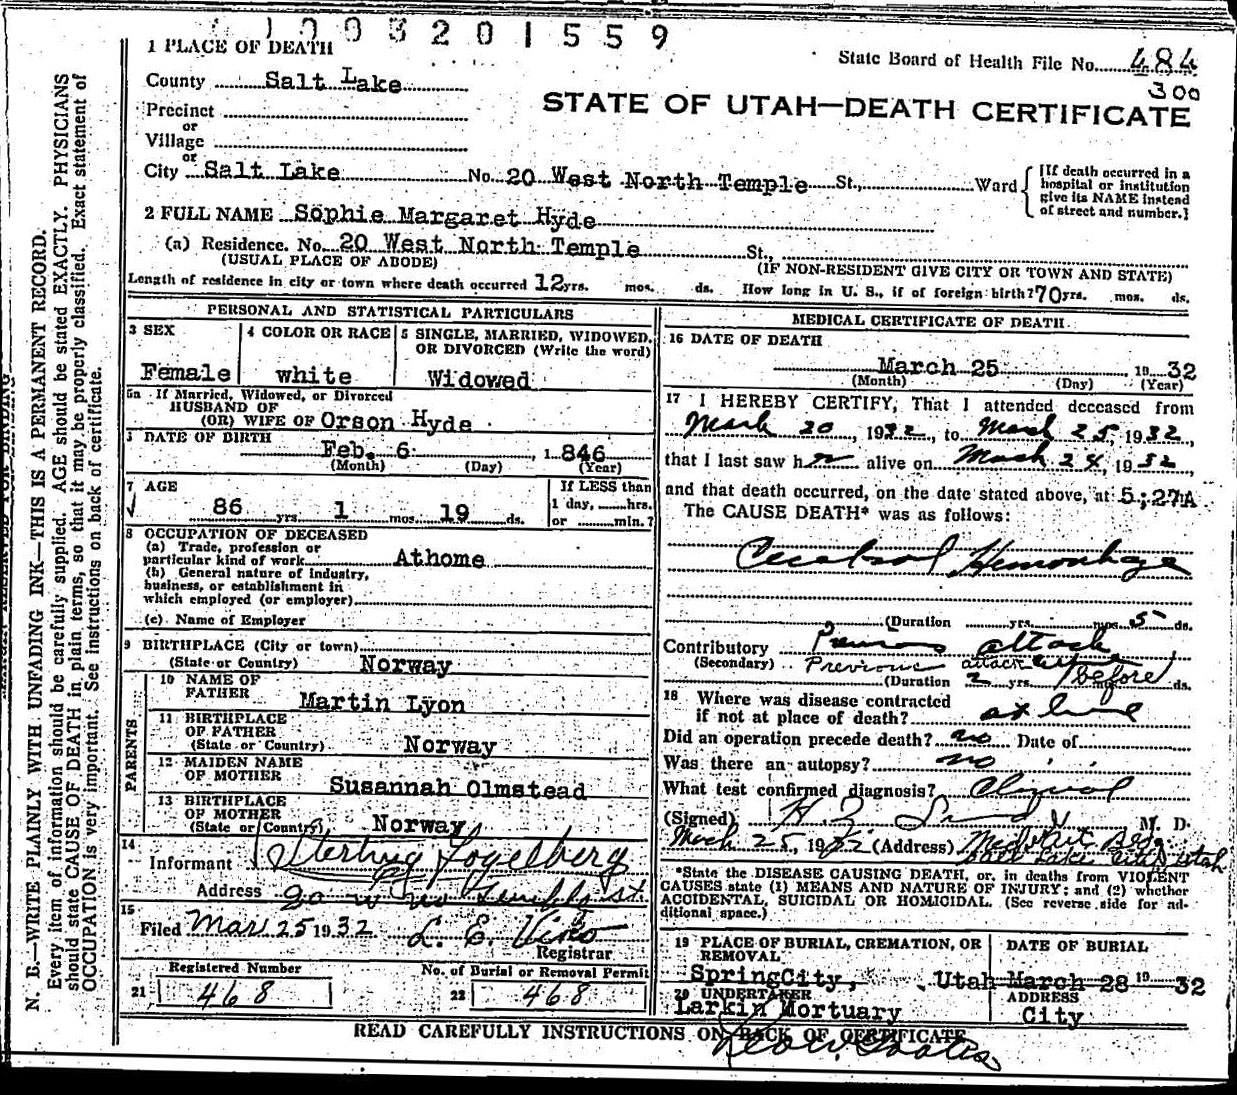 1003201559
1 PLACE OF DEATH
State Board of Health File No. 484
300
County Salt Lake
STATE OF UTAH—DEATH CERTIFICATE
Precinct
or
Village
or
City Salt Lake No. 20 West North Temple St., Ward
[If death occurred in a hospital or institution give its NAME instead of street and number.]
2 FULL NAME Sophie Margaret Hyde
(a) Residence. No. 20 West North Temple St.,
(USUAL PLACE OF ABODE) (IF NON-RESIDENT GIVE CITY OR TOWN AND STATE)
Length of residence in city or town where death occurred 12 yrs. mos. ds. How long in U. S., if of foreign birth? 70 yrs. mos. ds.
PERSONAL AND STATISTICAL PARTICULARS
3 SEX
Female
4 COLOR OR RACE
white
5 SINGLE, MARRIED, WIDOWED, OR DIVORCED (Write the word)
Widowed
5a If Married, Widowed, or Divorced
HUSBAND OF
(OR) WIFE OF Orson Hyde
DATE OF BIRTH
Feb. 6, 1846
(Month) (Day) (Year)
7 AGE
86 yrs. 1 mos. 19 ds.
If LESS than
1 day, hrs.
or min.?
8 OCCUPATION OF DECEASED
(a) Trade, profession or
particular kind of work Athome
(b) General nature of industry,
business, or establishment in
which employed (or employer)
(c) Name of Employer
9 BIRTHPLACE (City or town)
(State or Country) Norway
PARENTS
10 NAME OF
FATHER
Martin Lyon
11 BIRTHPLACE
OF FATHER
(State or Country) Norway
12 MAIDEN NAME
OF MOTHER
Susannah Olmstead
13 BIRTHPLACE
OF MOTHER
(State or Country) Norway
14
Informant Sterling Fogelberg
Address 20 w no Temple st.
15
Filed Mar 25 1932 L. E. Viko
Registrar
Registered Number
21 468
No. of Burial or Removal Permit
22 468
MEDICAL CERTIFICATE OF DEATH
16 DATE OF DEATH
March 25 19 32
(Month) (Day) (Year)
17 I HEREBY CERTIFY, That I attended deceased from
March 20, 1932, to March 25, 1932,
that I last saw her alive on March 24, 1932,
and that death occurred, on the date stated above, at 5;27A
The CAUSE DEATH* was as follows:
Cerebral Hemorrhage
(Duration yrs. mos. 5 ds.
Contributory Previous attack
(Secondary) Previous attack before
(Duration 2 yrs. mos. ds.
18 Where was disease contracted
if not at place of death? at home
Did an operation precede death? no Date of
Was there an autopsy? no
What test confirmed diagnosis? Clinical
(Signed) M. D.
March 25, 1932 (Address) Med Art Bldg
Salt Lake City Utah
*State the DISEASE CAUSING DEATH, or, in deaths from VIOLENT
CAUSES state (1) MEANS AND NATURE OF INJURY; and (2) whether
ACCIDENTAL, SUICIDAL OR HOMICIDAL. (See reverse side for ad-
ditional space.)
19 PLACE OF BURIAL, CREMATION, OR
REMOVAL
SpringCity, Utah
DATE OF BURIAL
March 28 19 32
20 UNDERTAKER
Larkin Mortuary
ADDRESS
City
READ CAREFULLY INSTRUCTIONS ON BACK OF CERTIFICATE
N. B.—WRITE PLAINLY WITH UNFADING INK—THIS IS A PERMANENT RECORD.
Every item of information should be carefully supplied. AGE should be stated EXACTLY. PHYSICIANS
should state CAUSE OF DEATH in plain, terms, so that it may be properly classified. Exact statement of
OCCUPATION is very important. See instructions on back of certificate.
MARGIN RESERVED FOR BINDING